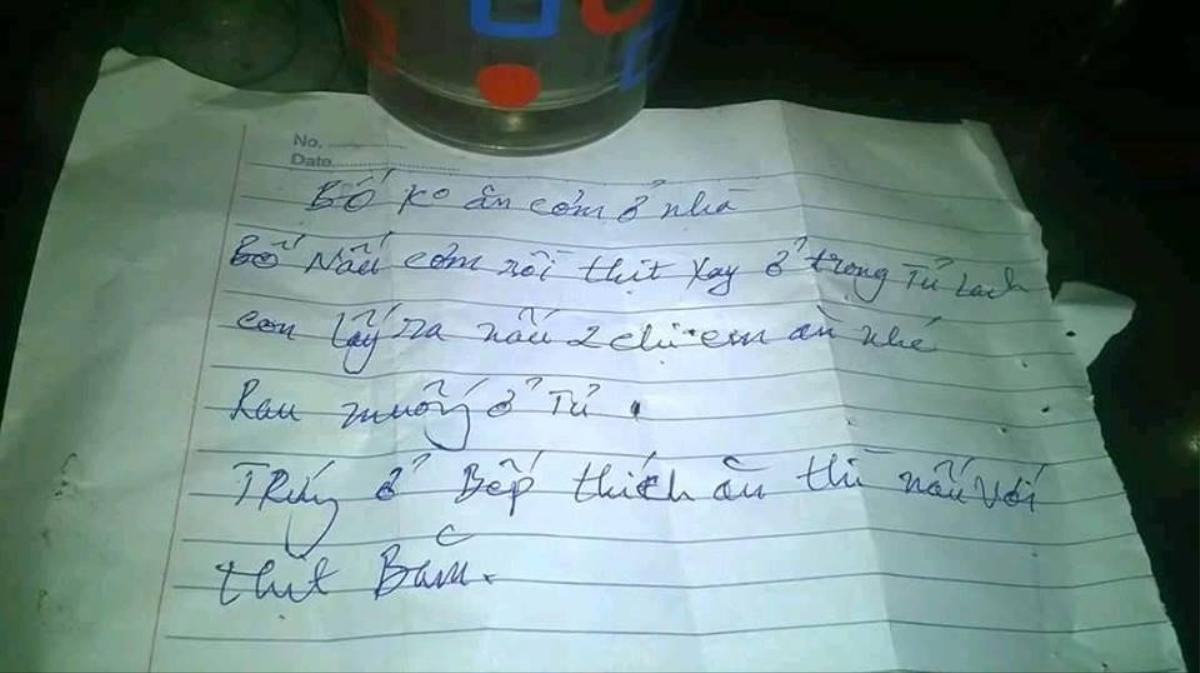 No. ............
Date ............
Bố ko ăn cơm ở nhà
Bố Nấu cơm rồi thịt xay ở trong Tủ Lạnh
con lấy ra nấu 2 chị em ăn nhé
Rau muống ở Tủ.
Trứng ở Bếp thích ăn thì nấu với
thịt Băm.